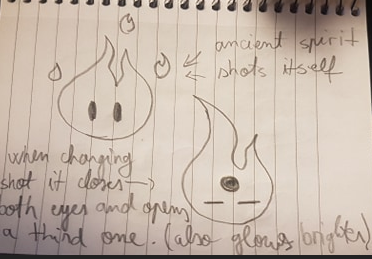 ancient spirit
shots itself
when changing
shot it closes
both eyes and opens
a third one. (also glows brighter)